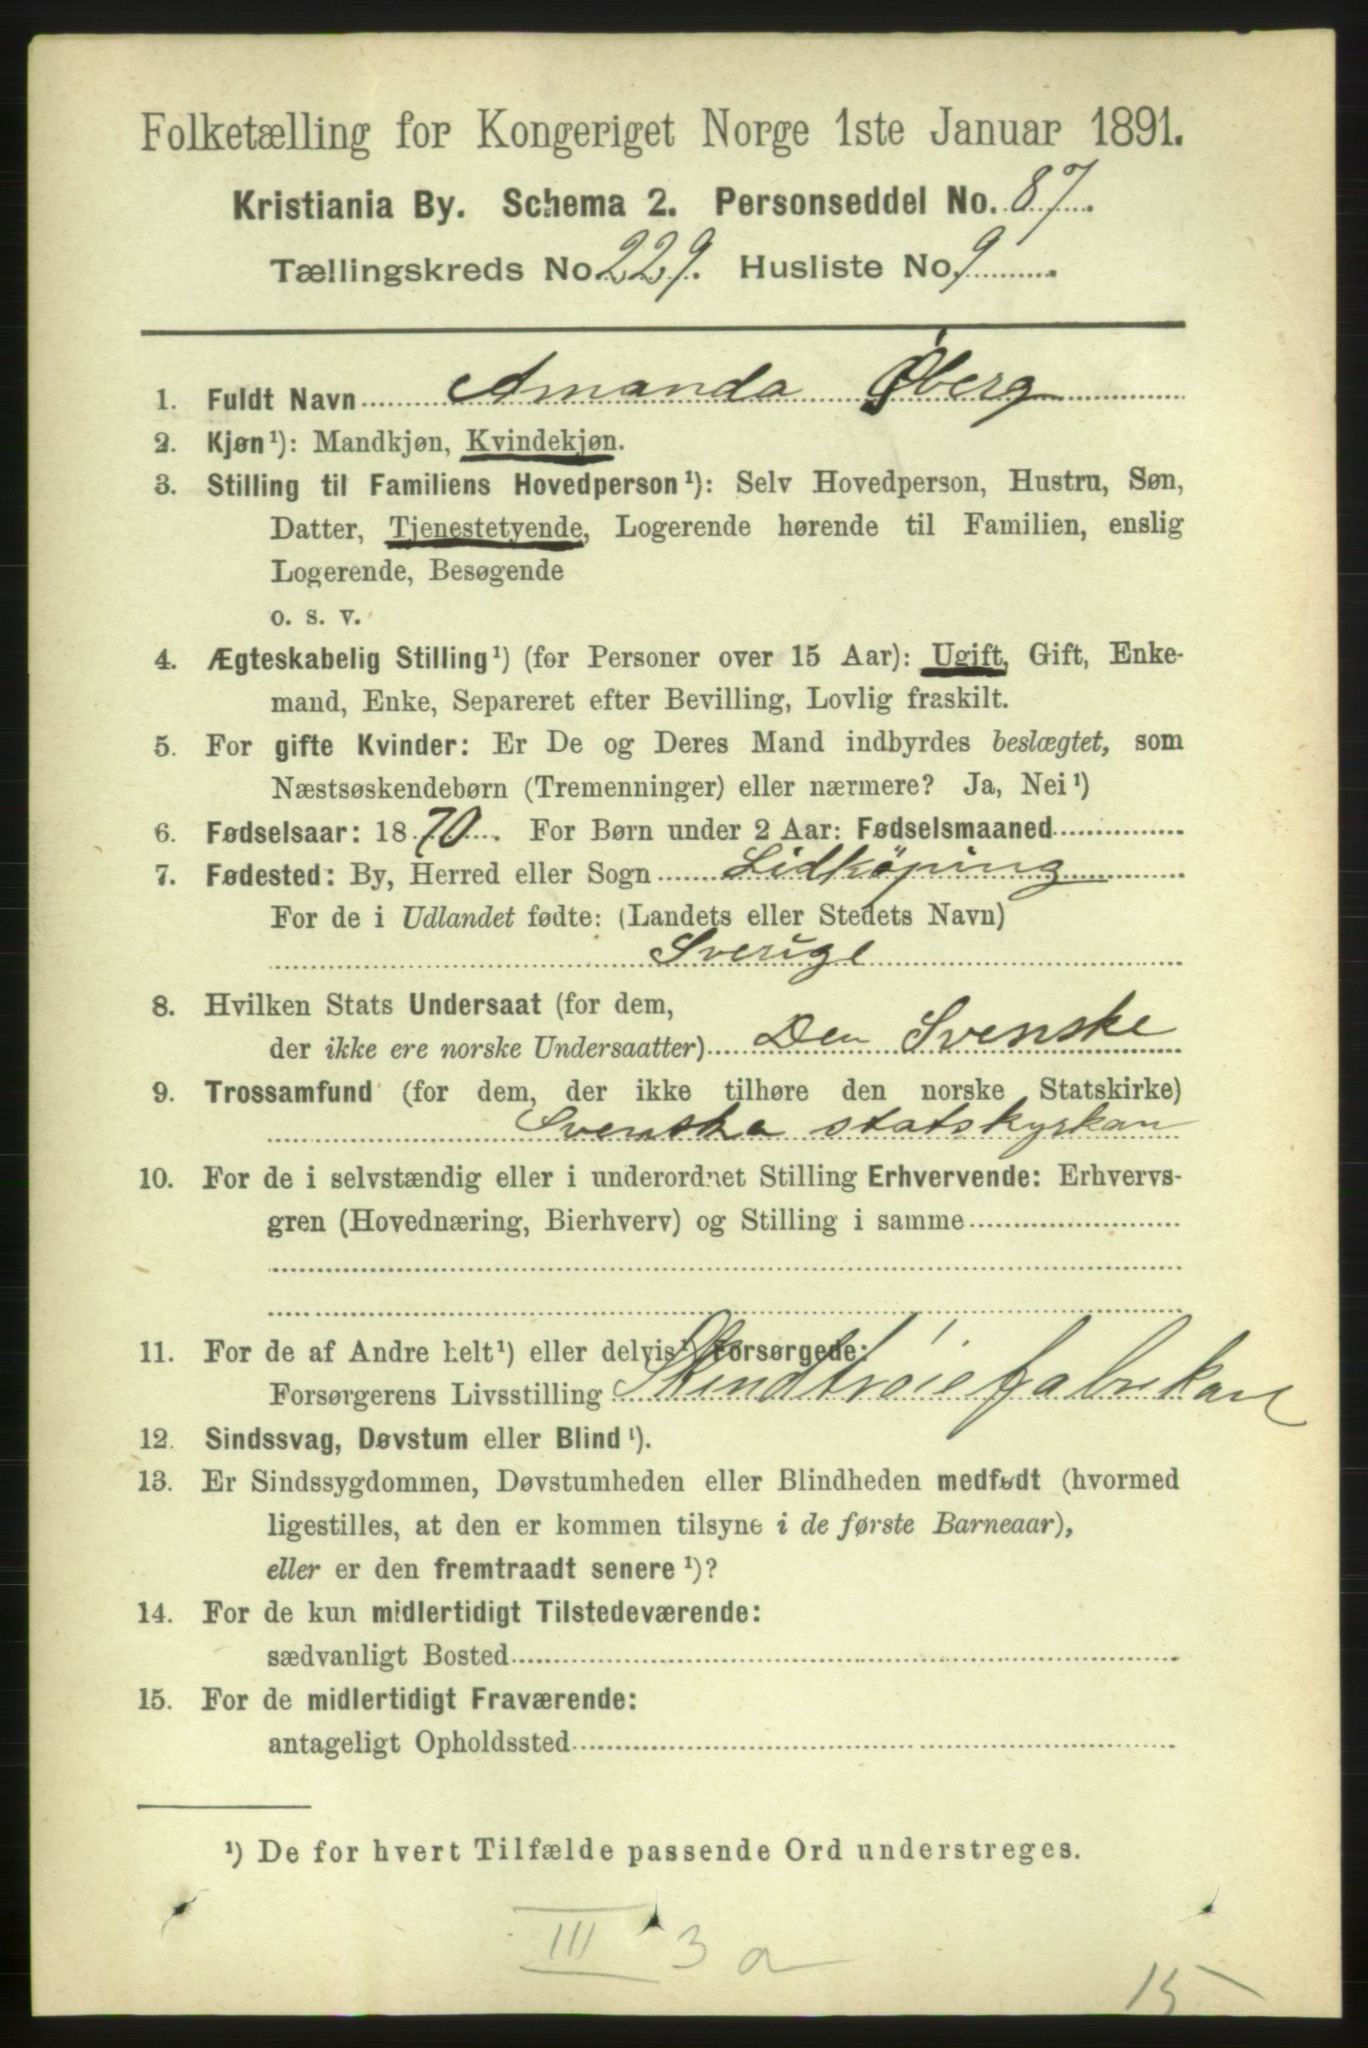 Folketælling for Kongeriget Norge 1ste Januar 1891.
Kristiania By. Schema 2. Personseddel No. 87.
Tællingskreds No. 229. Husliste No. 9.
1. Fuldt Navn Amanda Øberg
2. Kjøn¹): Mandkjøn, Kvindekjøn.
3. Stilling til Familiens Hovedperson¹): Selv Hovedperson, Hustru, Søn,
Datter, Tjenestetyende, Logerende hørende til Familien, enslig
Logerende, Besøgende
o. s. v.
4. Ægteskabelig Stilling¹) (for Personer over 15 Aar): Ugift, Gift, Enke-
mand, Enke, Separeret efter Bevilling, Lovlig fraskilt.
5. For gifte Kvinder: Er De og Deres Mand indbyrdes beslægtet, som
Næstsøskendebørn (Tremenninger) eller nærmere? Ja, Nei¹)
6. Fødselsaar: 1870. For Børn under 2 Aar: Fødselsmaaned
7. Fødested: By, Herred eller Sogn Lidköping
For de i Udlandet fødte: (Landets eller Stedets Navn)
Sverige
8. Hvilken Stats Undersaat (for dem,
der ikke ere norske Undersaatter) Den Svenske
9. Trossamfund (for dem, der ikke tilhøre den norske Statskirke)
Svenska statskyrkan
10. For de i selvstændig eller i underordnet Stilling Erhvervende: Erhvervs-
gren (Hovednæring, Bierhverv) og Stilling i samme
11. For de af Andre helt¹) eller delvis¹) Forsørgede:
Forsørgerens Livsstilling Skindtrøiefabrikant
12. Sindssvag, Døvstum eller Blind¹).
13. Er Sindssygdommen, Døvstumheden eller Blindheden medfødt (hvormed
ligestilles, at den er kommen tilsyne i de første Barneaar),
eller er den fremtraadt senere¹)?
14. For de kun midlertidigt Tilstedeværende:
sædvanligt Bosted
15. For de midlertidigt Fraværende:
antageligt Opholdssted
¹) De for hvert Tilfælde passende Ord understreges.
III 3 a
15